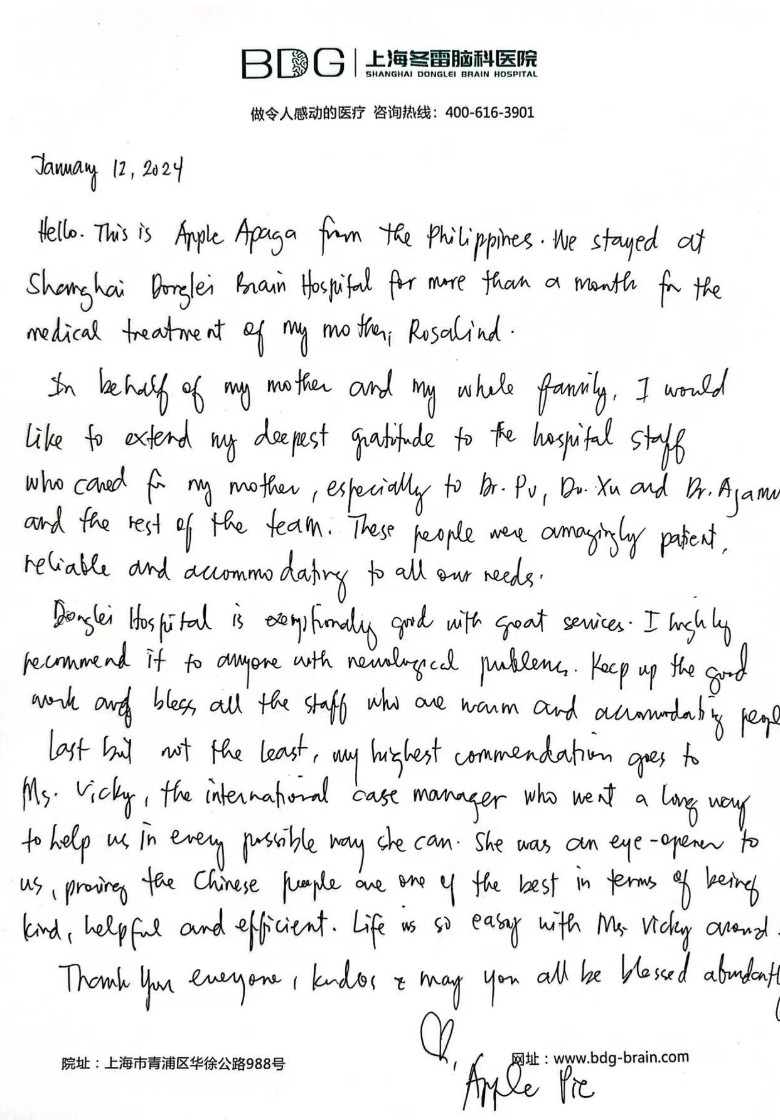 BDG 上海冬雷脑科医院
SHANGHAI DONGLEI BRAIN HOSPITAL
做令人感动的医疗 咨询热线：400-616-3901
January 12, 2024
Hello. This is Apple Apaga from the Philippines. We stayed at
Shanghai Donglei Brain Hospital for more than a month for the
medical treatment of my mother, Rosalind.
In behalf of my mother and my whole family, I would
like to extend my deepest gratitude to the hospital staff
who cared for my mother, especially to Dr. Pu, Dr. Xu and Dr.
and the rest of the team. These people were amazingly patient,
reliable and accommodating to all our needs.
Donglei Hospital is exceptionally good with great services. I highly
recommend it to anyone with neurological problems. Keep up the good
work and bless all the staff who are warm and accommodating
Last but not the least, my highest commendation goes to
Ms. Vicky, the international case manager who went a long way
to help us in every possible way she can. She was an eye-opener to
us, proving the Chinese people are one of the best in terms of being
kind, helpful and efficient. Life is so easy with Ms. Vicky around.
Thank you everyone, kudos & may you all be blessed
院址：上海市青浦区华徐公路988号
网址：www.bdg-brain.com
Apple Pie